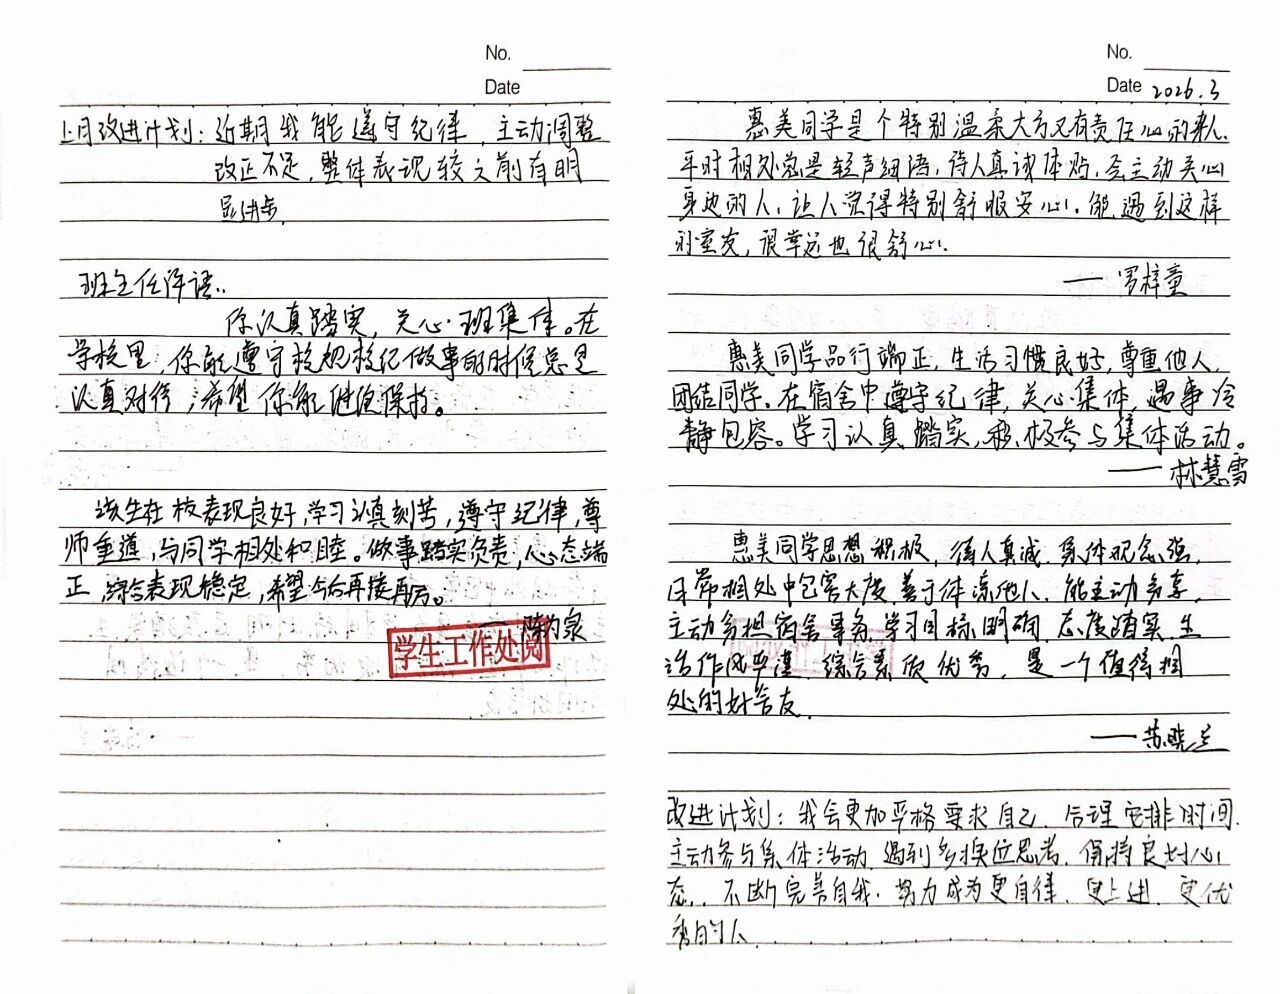 No.
Date
上月改进计划：近期我能遵守纪律，主动调整
改正不足，整体表现较之前有明
显进步.
班主任评语：
你认真踏实，关心班集体。在
学校里，你能遵守校规校纪做事的时候总是
认真对待，希望你能继续保持。
该生在校表现良好，学习认真刻苦，遵守纪律，尊
师重道，与同学相处和睦。做事踏实负责，心态端
正，综合表现稳定，希望今后再接再厉。
——陈为泉
学生工作处阅
No.
Date 2026.3
惠美同学是个特别温柔大方又有责任心的人.
平时相处总是轻声细语，待人真诚体贴，会主动关心
身边的人，让人觉得特别舒服安心. 能遇到这样
的室友，很幸运也很舒心.
——罗梓童
惠美同学品行端正，生活习惯良好，尊重他人，
团结同学。在宿舍中遵守纪律，关心集体，遇事冷
静包容。学习认真踏实，积极参与集体活动。
——林慧雪
惠美同学思想积极，待人真诚，集体观念强，
日常相处中包容大度，善于体谅他人，能主动分享，
主动分担宿舍事务，学习目标明确，态度踏实，生
活作风严谨，综合素质优秀，是一个值得相
处的好舍友.
——苏晓兰
改进计划：我会更加严格要求自己，合理安排时间.
主动参与集体活动，遇到多换位思考，保持良好心
态，不断完善自我. 努力成为更自律、更上进、更优
秀的人.